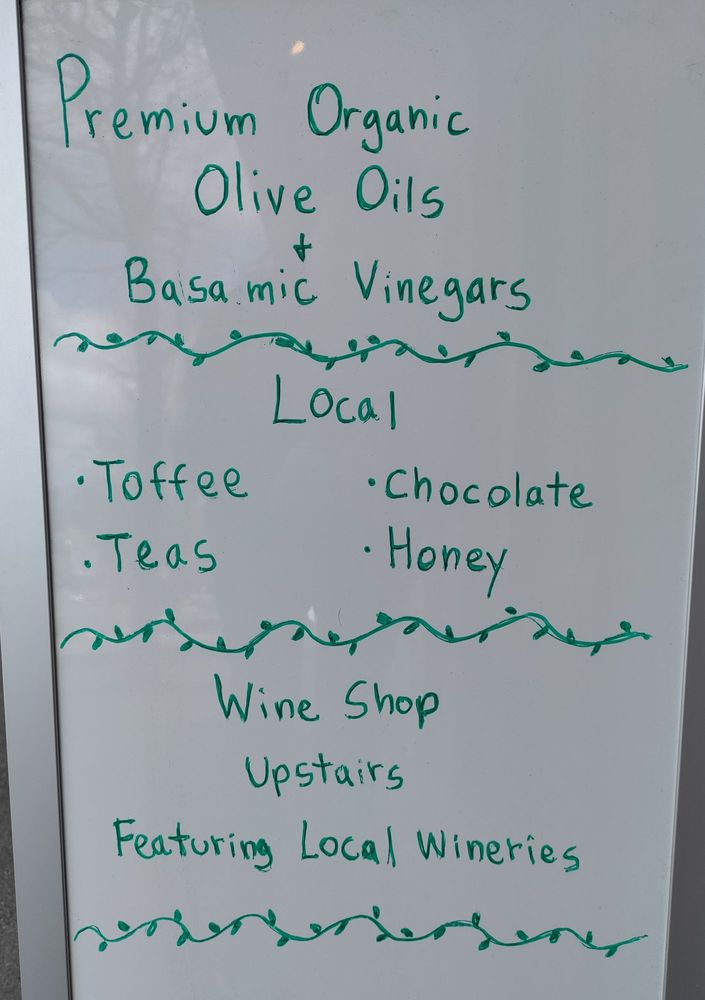 Premium Organic
Olive Oils
+
Balsamic Vinegars
Local
· Toffee · Chocolate
· Teas · Honey
Wine Shop
Upstairs
Featuring Local Wineries